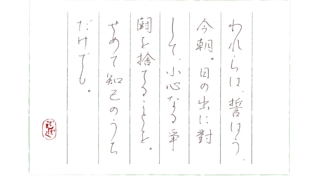 われらは、誓はう、
今朝。日の出に對
して、小心なる爭
鬪を捨てることを。
せめて知己のうち
だけでも。